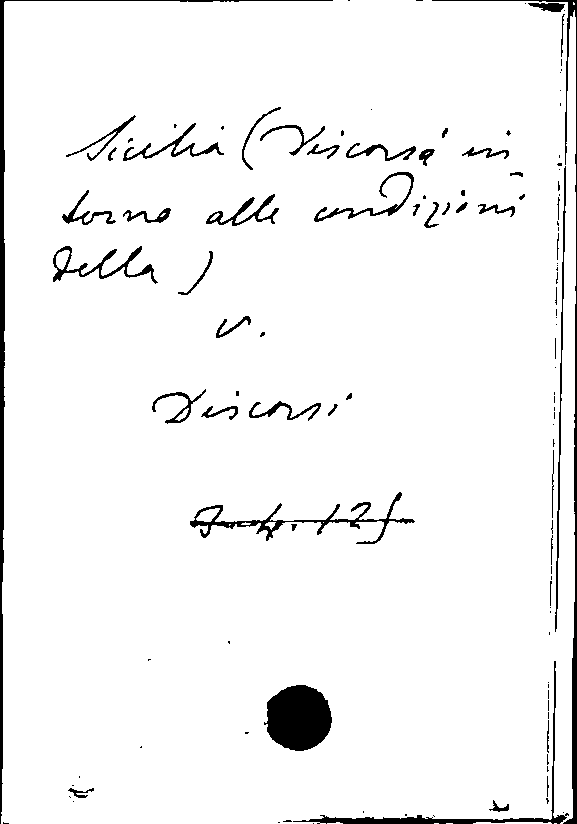 Sicilia (Discorsi in
torno alle condizioni
della)
v.
Discorsi